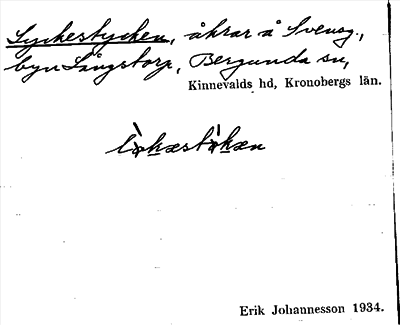 Lyckestycken, åkrar å Svensg.,
byn Långstorp, Bergunda sn,
Kinnevalds hd, Kronobergs län.
Erik Johannesson 1934.